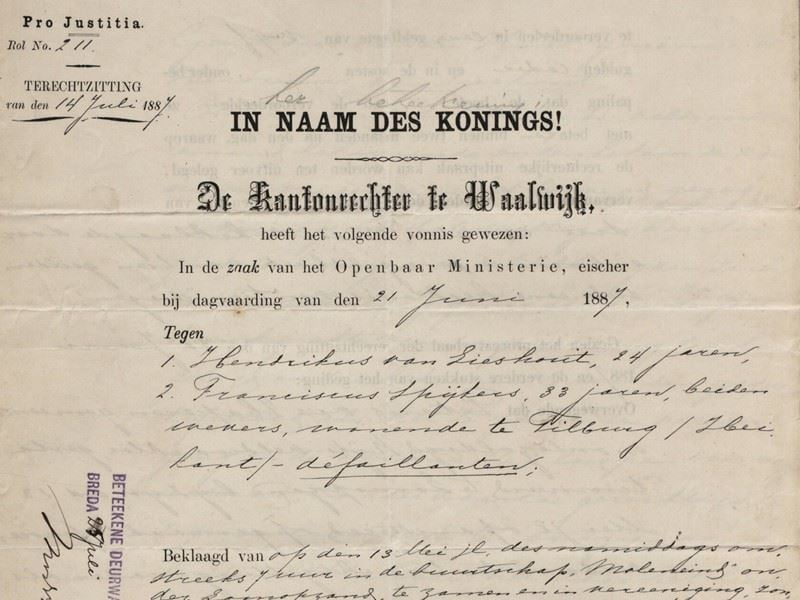 Pro Justitia.
Rol No. 211.
TERECHTZITTING
van den 14 Juli 1887.
ter beteekening
IN NAAM DES KONINGS!
De Kantonrechter te Waalwijk,
heeft het volgende vonnis gewezen:
In de zaak van het Openbaar Ministerie, eischer
bij dagvaarding van den 21 Juni 1887,
Tegen
1. Hendrikus van Lieshout, 24 jaren,
2. Franciscus Spijkers, 33 jaren, beiden
wevers, wonende te Tilburg / Hei
kant / - défaillanten;
BETEEKENE DEURW
BREDA Juli
Beklaagd van op den 13 Mei jl. des namiddags om
streeks 7 uur in de buurtschap "Moleneind" on
der Loonopzand, te zamen en in vereeniging, zon